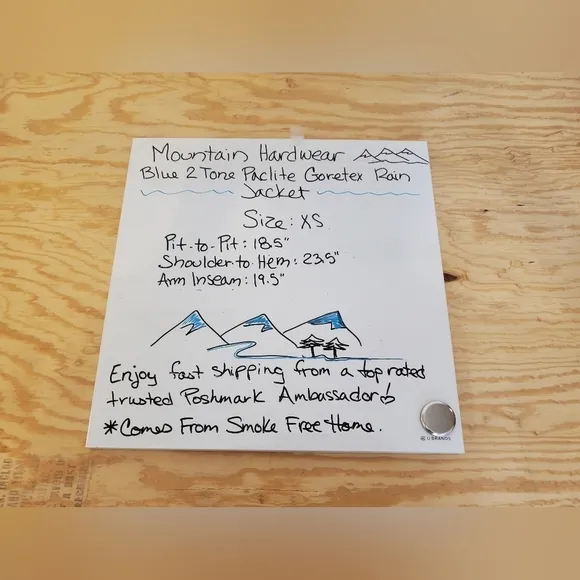 Mountain Hardwear
Blue 2 Tone Paclite Goretex Rain
Jacket
Size: XS
Pit-to-Pit: 18.5"
Shoulder to Hem: 23.5"
Arm Inseam: 19.5"
Enjoy fast shipping from a top rated
trusted Poshmark Ambassador
*Comes From Smoke Free Home.
U BRANDS